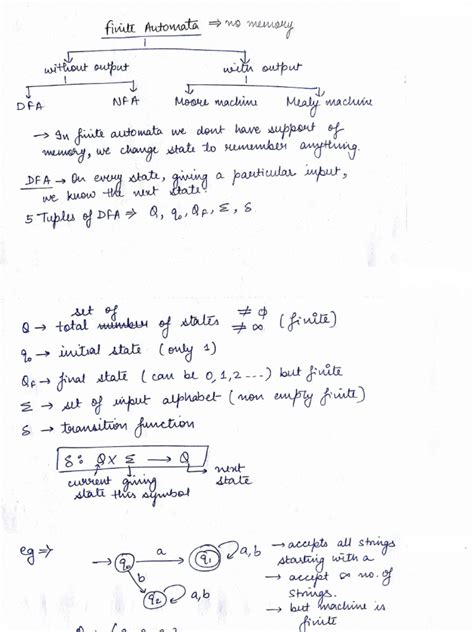 Finite Automata ⇒ no memory
without output with output
DFA NFA Moore machine Mealy machine
→ In finite automata we dont have support of
memory, we change state to remember anything.
DFA → On every state, giving a particular input,
we know the next state.
5 Tuples of DFA ⇒ Q, q₀, QF, Σ, δ
set of
Q → total number of states ≠ ϕ (finite)
≠ ∞
q₀ → initial state (only 1)
QF → final state (can be 0,1,2 ---) but finite
Σ → set of input alphabet (non empty finite)
δ → transition function
δ: Q × Σ → Q
current giving next
state this symbol state
eg ⇒ → q₀ a q₁ a,b → accepts all strings
starting with a
b → accept ∞ no. of
q₂ a,b strings.
→ but machine is
finite